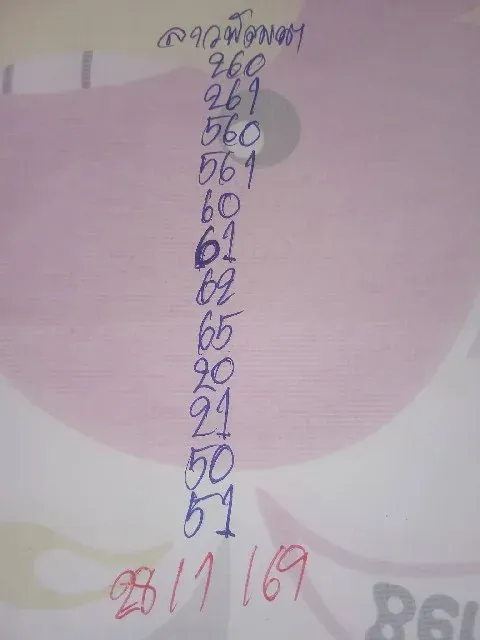 ลาวพัฒนา
260
261
560
561
60
61
62
65
20
21
50
51
28/1/69